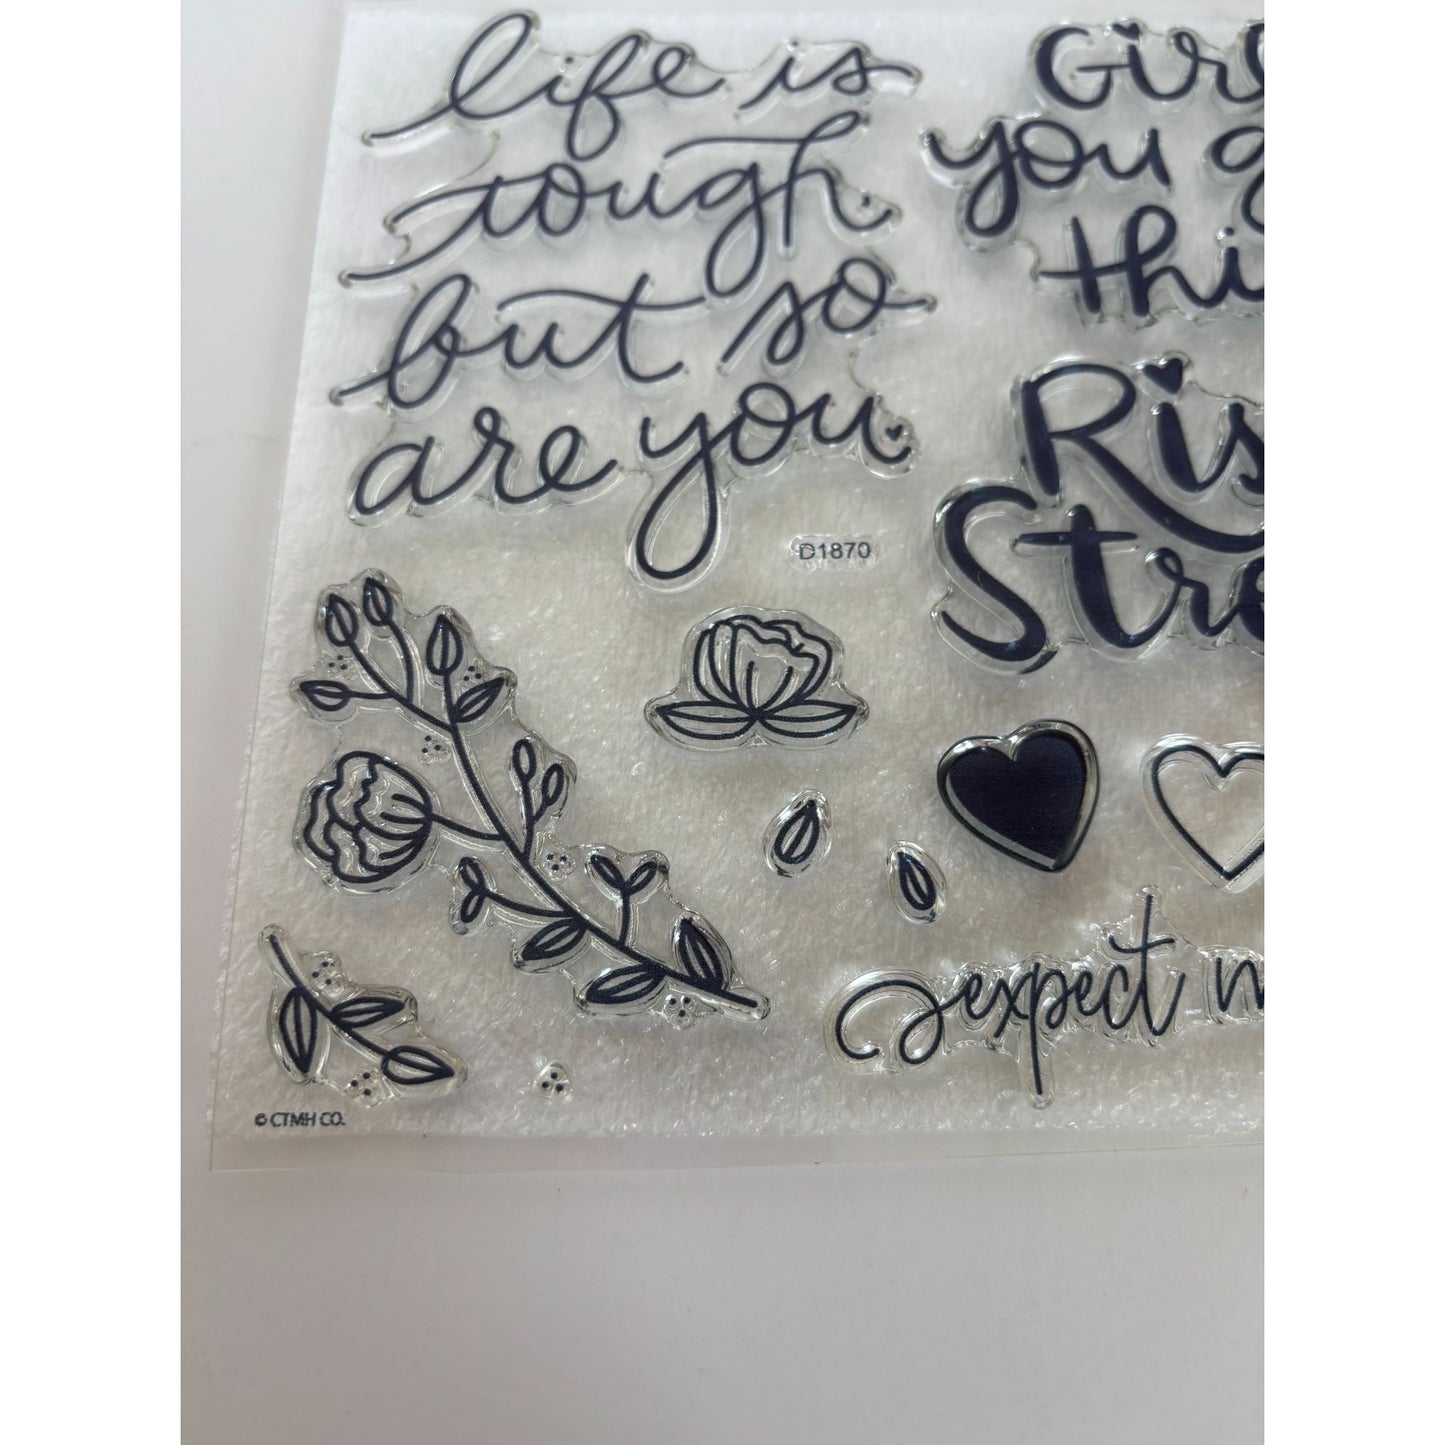 life is
tough
but so
are you
Girl
you g
thi
Ris
Stro
D1870
expect m
© CTMH CO.